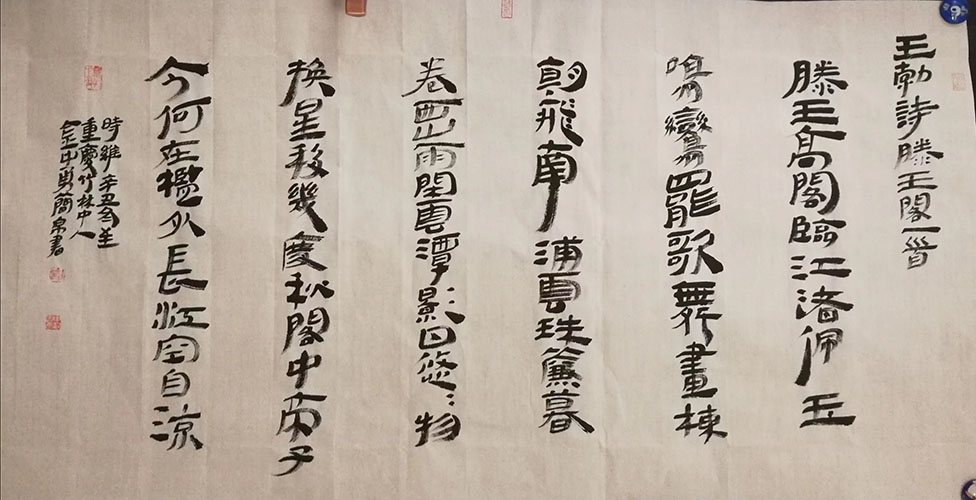 王勃詩滕王閣一首
滕王高閣臨江渚佩玉
鳴鸞罷歌舞畫棟
朝飛南浦雲珠簾暮
卷西山雨閑雲潭影日悠〻物
換星移幾度秋閣中帝子
今何在檻外長江空自涼
時維辛丑冬
重慶竹林中人
中勇簡帛書